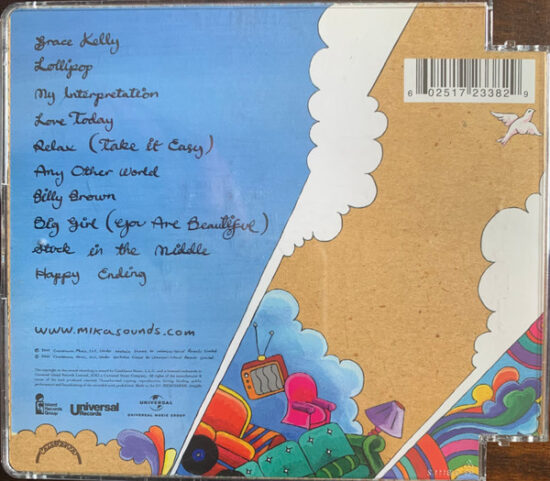 Grace Kelly
Lollipop
My Interpretation
Love Today
Relax (Take it Easy)
Any Other World
Billy Brown
Big Girl (You Are Beautiful)
Stuck in the Middle
Happy Ending
www.mikasounds.com
Island Records Group
Universal Records
UNIVERSAL
UNIVERSAL MUSIC GROUP
6 02517 23382 9